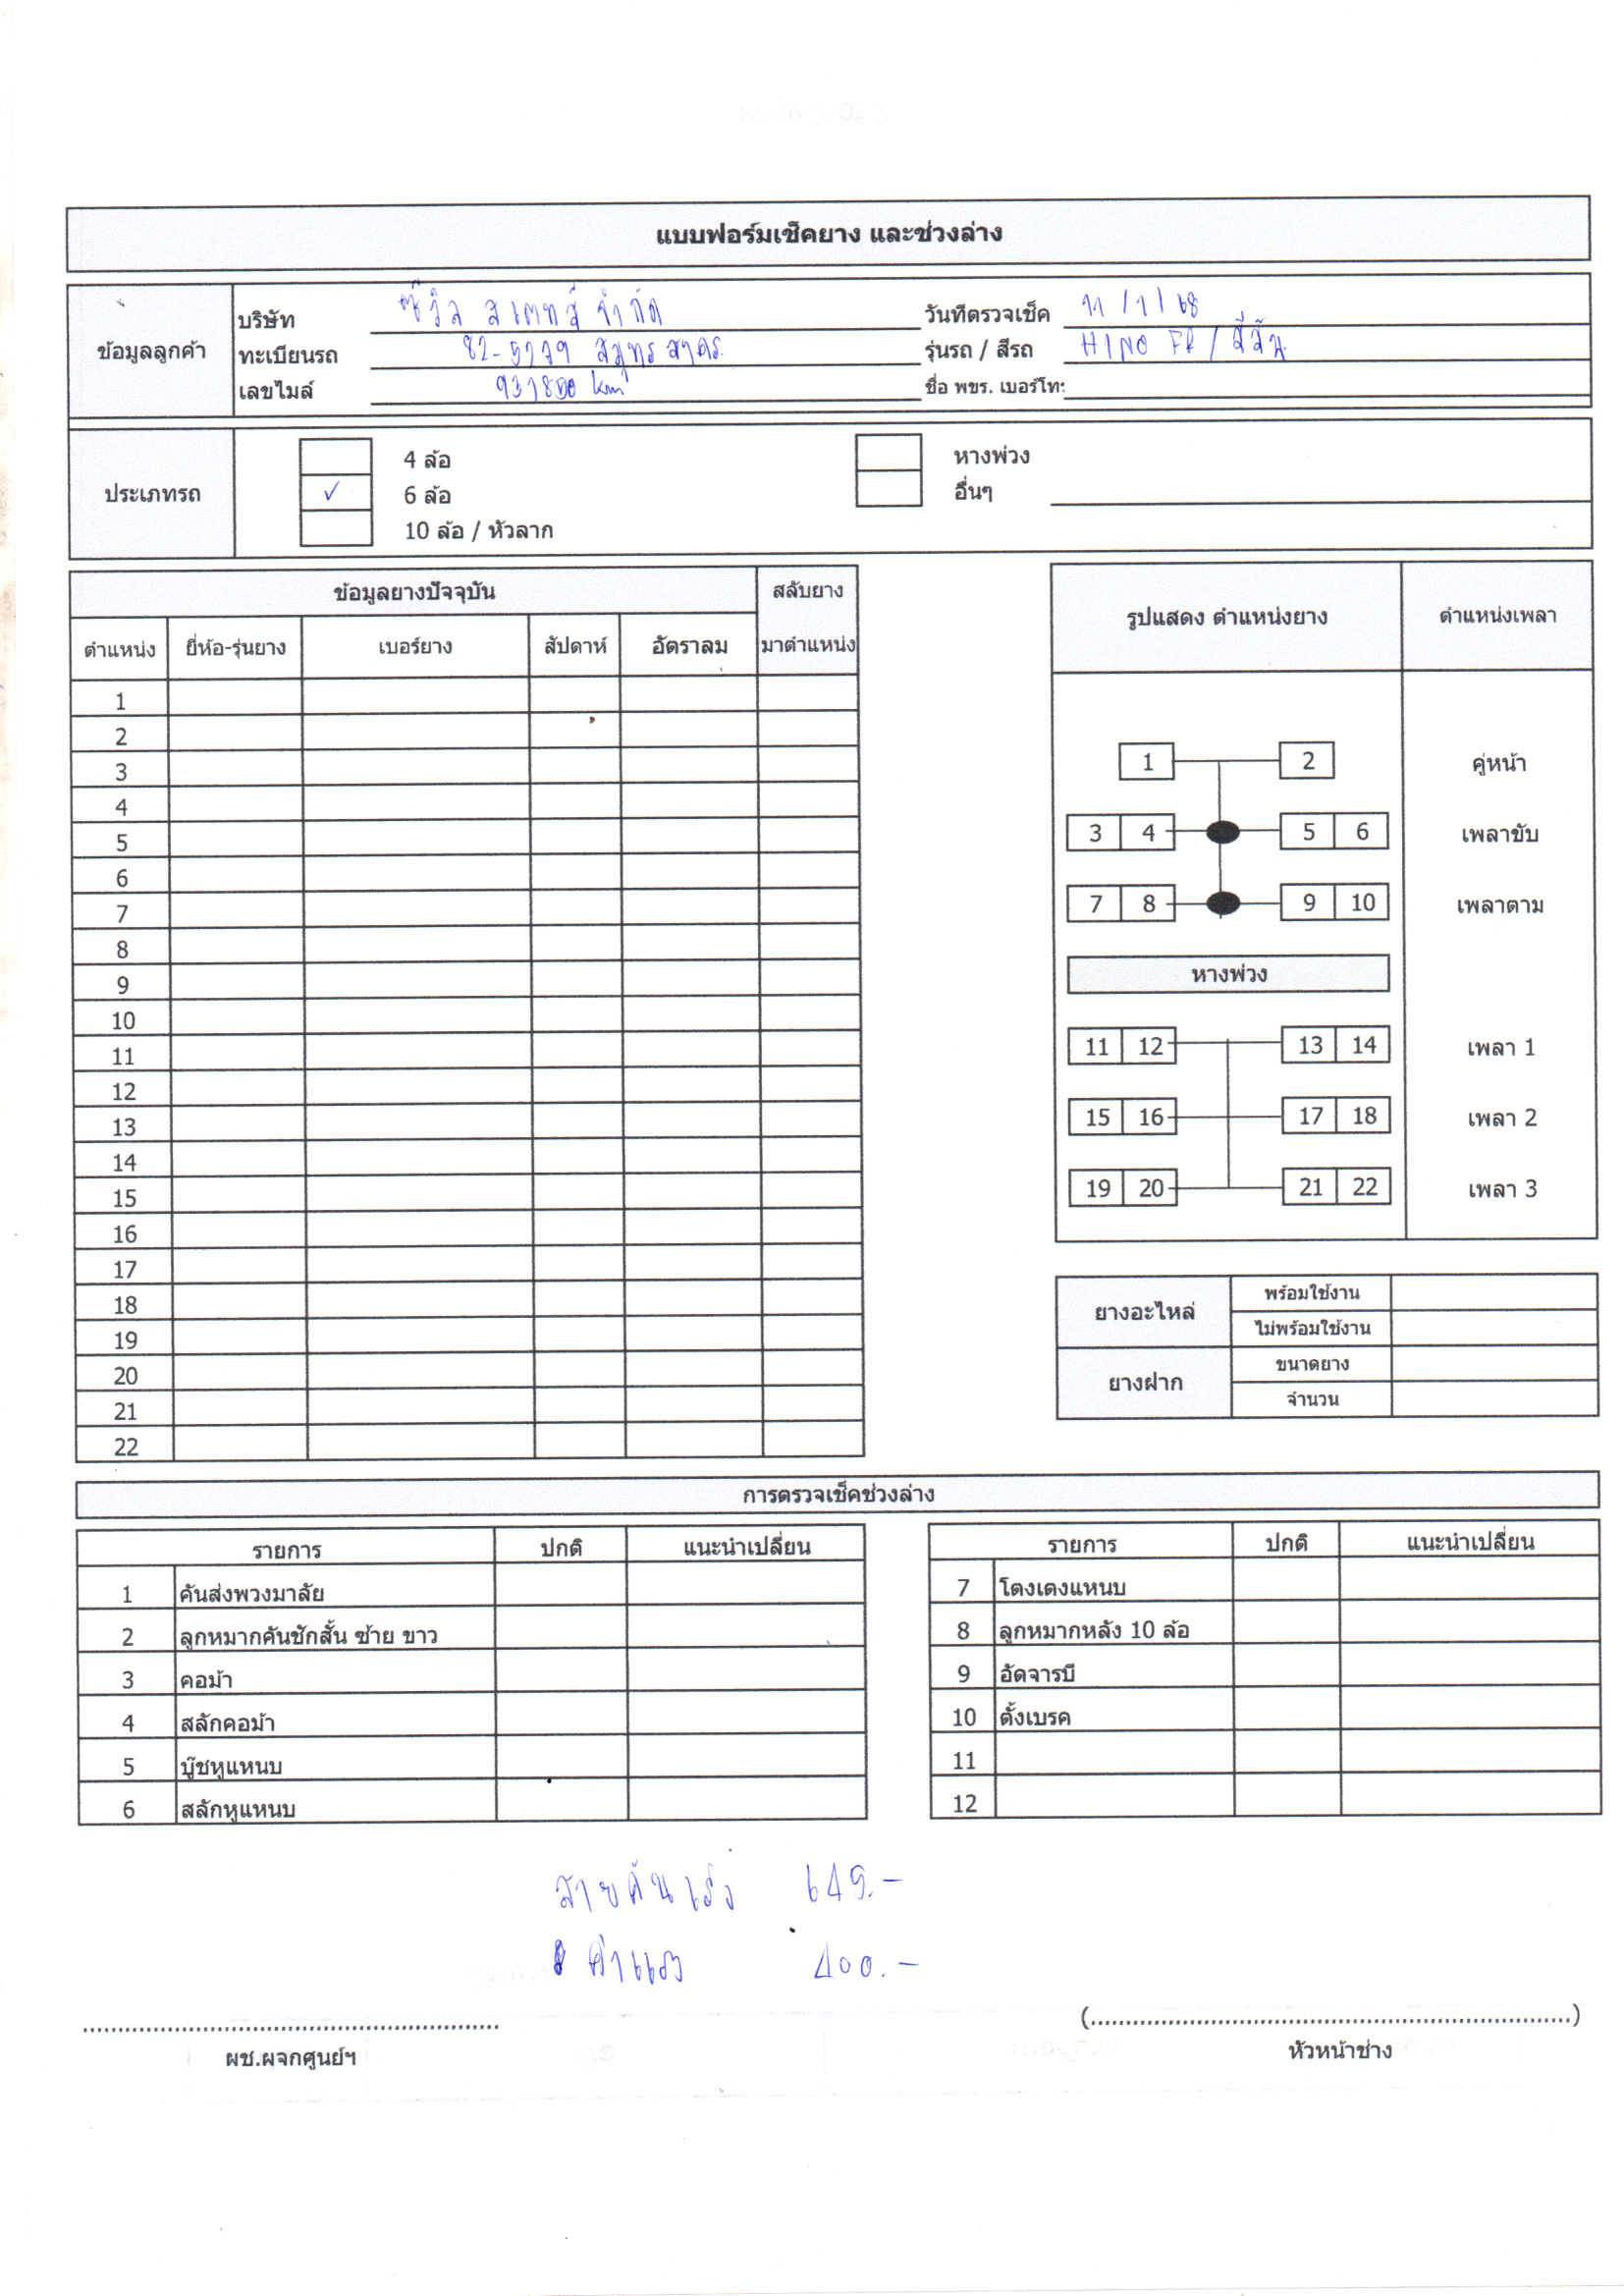 แบบฟอร์มเช็คยาง และช่วงล่าง
ข้อมูลลูกค้า
บริษัท ซีวิล สเตทส์ จำกัด วันที่ตรวจเช็ค 11/1/68
ทะเบียนรถ 82-5279 สมุทรสาคร รุ่นรถ / สีรถ HINO FR /
เลขไมล์ km ชื่อ พขร. เบอร์โท:
ประเภทรถ
4 ล้อ หางพ่วง
✓ 6 ล้อ อื่นๆ
10 ล้อ / หัวลาก
ข้อมูลยางปัจจุบัน สลับยาง
ตำแหน่ง ยี่ห้อ-รุ่นยาง เบอร์ยาง สัปดาห์ อัตราลม มาตำแหน่ง
1
2
3
4
5
6
7
8
9
10
11
12
13
14
15
16
17
18
19
20
21
22
รูปแสดง ตำแหน่งยาง ตำแหน่งเพลา
1 2 คู่หน้า
3 4 5 6 เพลาขับ
7 8 9 10 เพลาตาม
หางพ่วง
11 12 13 14 เพลา 1
15 16 17 18 เพลา 2
19 20 21 22 เพลา 3
ยางอะไหล่ พร้อมใช้งาน
ไม่พร้อมใช้งาน
ยางฝาก ขนาดยาง
จำนวน
การตรวจเช็คช่วงล่าง
รายการ ปกติ แนะนำเปลี่ยน
1 คันส่งพวงมาลัย
2 ลูกหมากคันชักสั้น ซ้าย ขาว
3 คอม้า
4 สลักคอม้า
5 บู๊ชหูแหนบ
6 สลักหูแหนบ
รายการ ปกติ แนะนำเปลี่ยน
7 โตงเตงแหนบ
8 ลูกหมากหลัง 10 ล้อ
9 อัดจารบี
10 ตั้งเบรค
11
12
สายคันเร่ง 649.-
ค่าแรง 400.-
(..................................................)
ผช.ผจกศูนย์ฯ หัวหน้าช่าง